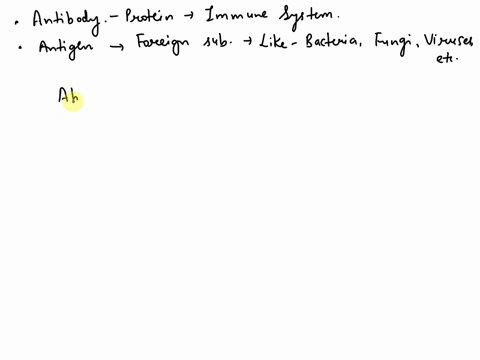 • Antibody. - Protein → Immune System.
• Antigen → Foreign sub. → Like - Bacteria, Fungi, Viruses
etc.